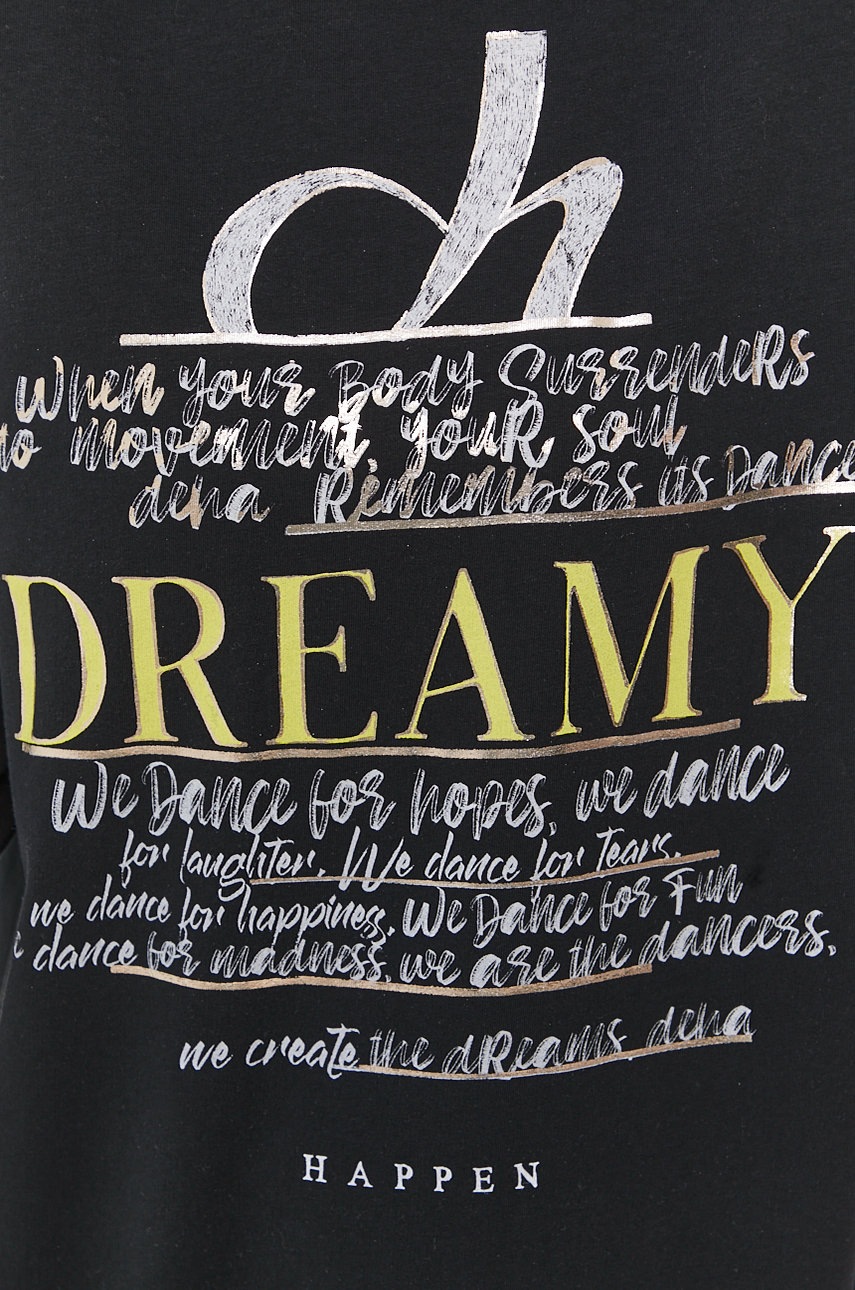 dh
When your Body Surrenders
to movement, youR soul
deha Remembers its Dance
DREAMY
We Dance for hopes, we dance
for laughter. We dance for tears.
we dance for happiness. We Dance for Fun
dance for madness. we are the dancers,
we create the dReams deha
HAPPEN